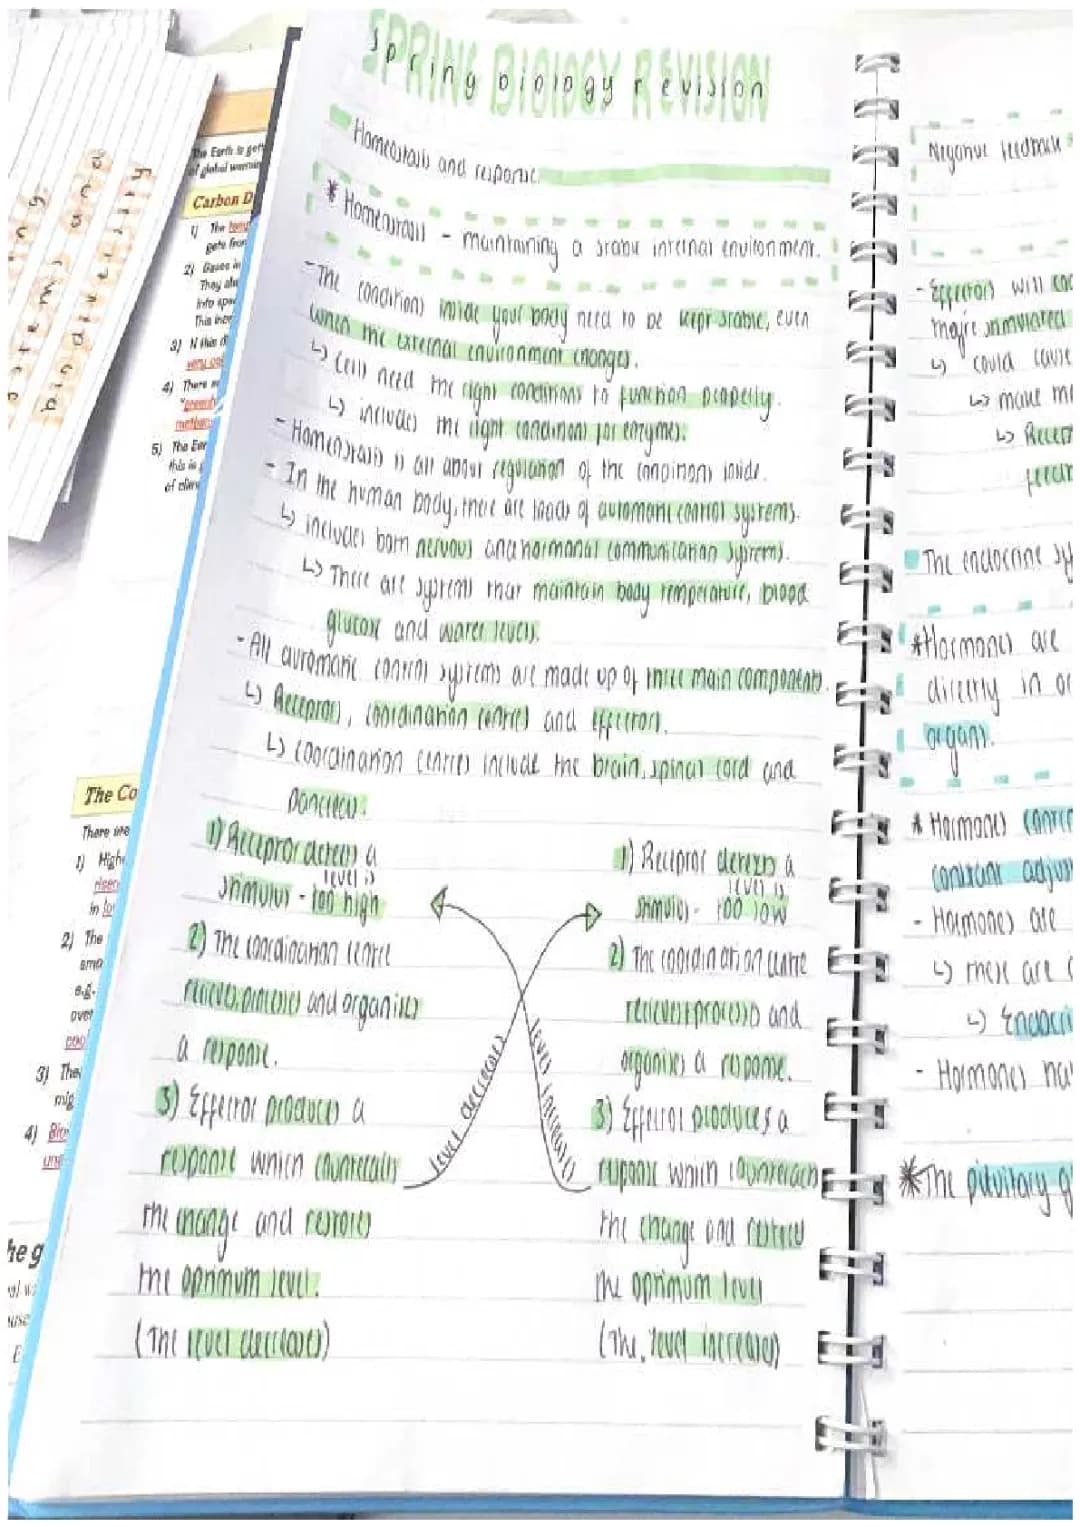 SPRING BIOLOGY REVISION
Spring biology revision
Homeostasis and response
* Homeostasis - maintaining a stable internal environment.
- The conditions inside your body need to be kept stable, even
when the external environment changes.
↳ Cells need the right conditions to function properly.
↳ includes the right conditions for enzymes.
- Homeostasis is all about regulation of the conditions inside.
- In the human body, there are loads of automatic control systems.
↳ includes both nervous and hormonal communication systems.
↳ There are systems that maintain body temperature, blood
glucose and water levels.
- All automatic control systems are made up of three main components.
↳ Receptors, coordination centres and effectors.
↳ Coordination centres include the brain, spinal cord and
pancreas.
1) Receptor detects a
level is
stimulus - too high
2) The coordination centre
receives, processes and organises
a response.
3) Effector produces a
response which counteracts
the change and restores
the optimum level.
(The level decreases)
level decreases
level increases
1) Receptor detects a
level is
stimulus - too low
2) The coordination centre
receives, processes and
organises a response.
3) Effector produces a
response which counteracts
the change and restores
the optimum level
(The level increases)
Negative feedback
- Effectors will
they're stimulated
↳ could cause
↳ make
↳ Recep
The endocrine sy
* Hormones are
directly in
organs.
* Hormones contro
constant adjus
- Hormones are
↳ these are
↳ Endocri
- Hormones ha
* The pituitary g
biodiversity and
The Earth is gett
of global warmin
Carbon D
1) The
gets from
2) Gases in
They als
into spac
This incr
3) If this d
4) There
5) The Ear
this is
of clim
The Co
There are
1) High
in lo
2) The
sma
e.g.
over
3) The
mig
4) Bio
he g